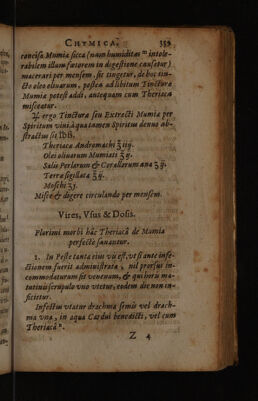 CHYMICA. 359
concisa Mumia sicca (nam humiditas intole-
rabilem illum fœtorem in digestione causatur)
macerari per mensem, sic tingetur, de hoc tin-
cto oleo olivarum, postea ad libitum Tinctura
Mumia potest addi, antequam cum Theriaca
misceatur.
℞. ergo Tinctura seu Extracti Mumia per
Spiritum vini à qua tamen Spiritus denuo ab-
stractus sit lbß.
Theriaca Andromachi ʒ iiij.
Olei olivarum Mumiati ʒ ij.
Salis Perlarum & Corallorum ana ʒ ij.
Terra sigillata ʒ ij.
Moschi ʒ j.
Misce & digere circulando per mensem.
Vires, Vsus & Dosis.
Plurimi morbi hâc Theriacâ de Mumia
perfectè sanantur.
1. In Peste tanta eius vis est, vt si ante infe-
ctionem fuerit administrata, nil prorsus in-
commodationis sit venenum, & qui hora ma-
tutinis scrupulo vno vtetur, eodem die non in-
ficietur.
Infectus vtatur drachma semis vel drach-
ma vna, in aqua Cardui benedicti, vel cum
Theriaca
Z 4